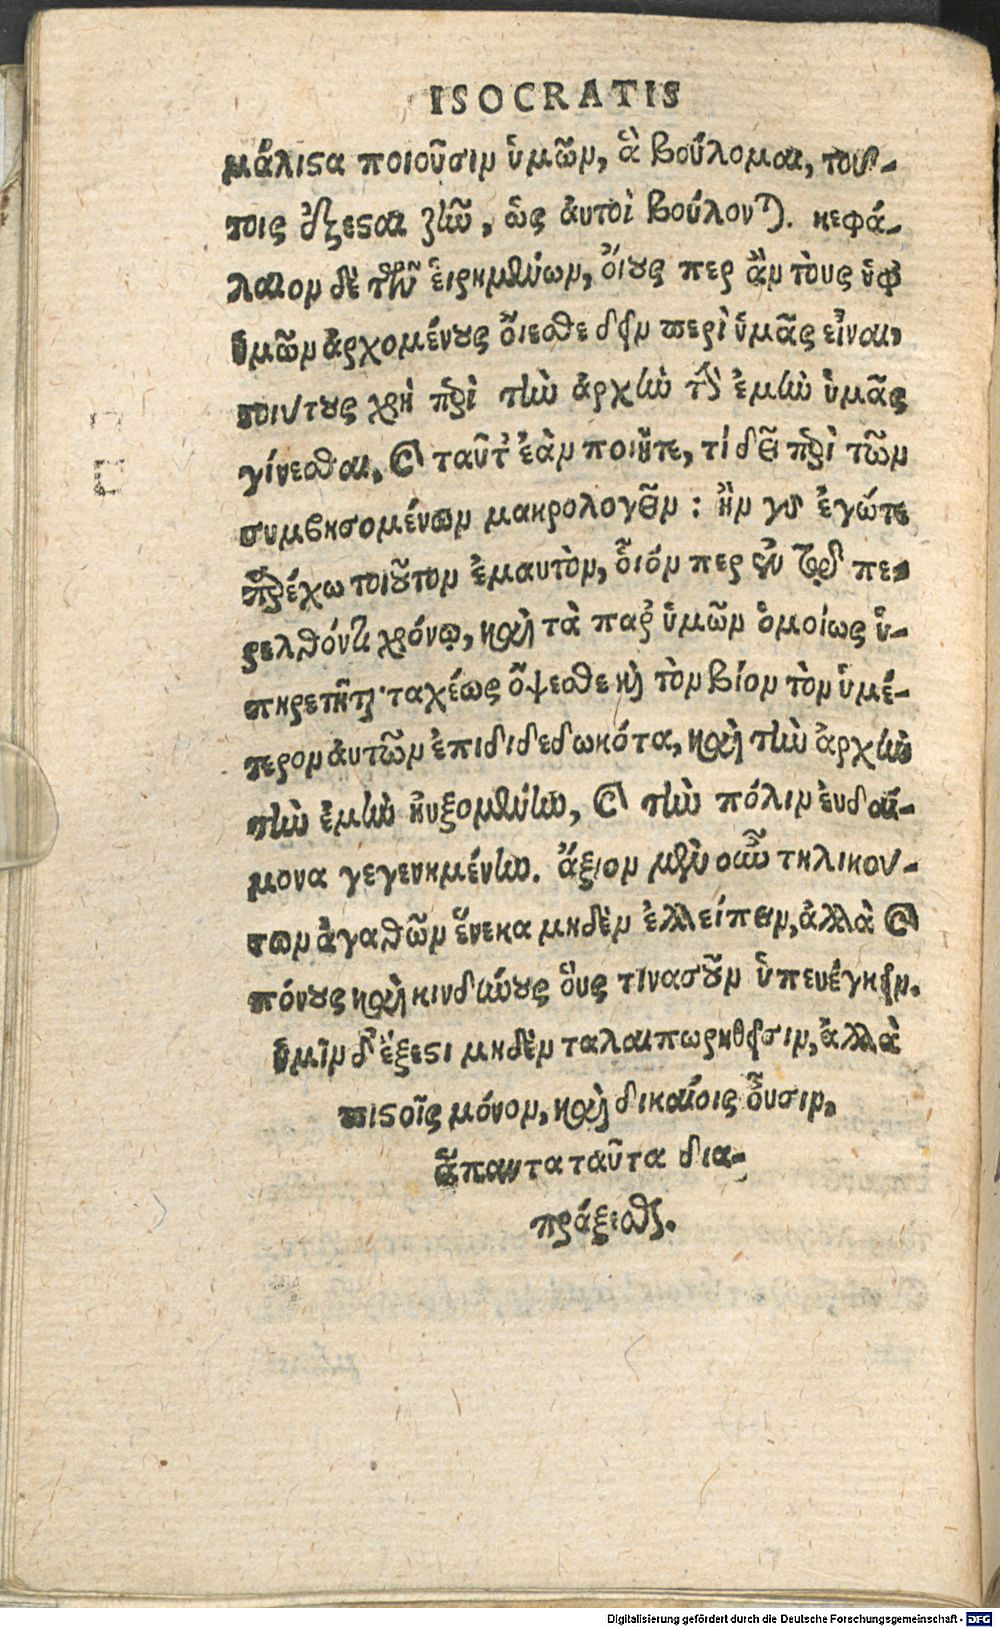 ISOCRATIS
μάλιϛα ποιοῦσιν ὑμῶν, ἃ βούλομαι, τού-
τοις ἐξέϛαι ζῆν, ὡς ἀυτοὶ βούλονται. κεφά-
λαιον δὲ τῶν εἰρημένων, ὅιους περ ἂν τοὺς ὑφ
ὑμῶν ἀρχομένους ὄιεσθε δεῖν περὶ ὑμᾶς εἶναι,
τοιούτους χρὴ περὶ τὴν ἀρχὴν τὴν ἐμὴν ὑμᾶς
γίνεσθαι, καὶ ταῦτ' ἐὰν ποιῆτε, τί δεῖ περὶ τῶν
συμβησομένων μακρολογεῖν: ἢν γὰρ ἐγώ τε
παρέχω τοιοῦτον ἐμαυτὸν, οἷόν περ ἐν τῷ πα-
ρελθόντι χρόνῳ, καὶ τὰ παρ' ὑμῶν ὁμοίως ὑ-
πηρετῆται ταχέως ὄψεσθε καὶ τὸν βίον τὸν ὑμέ-
τερον ἀυτῶν ἐπιδεδωκότα, καὶ τὴν ἀρχὴν
τὴν ἐμὴν ηὐξομένην, καὶ τὴν πόλιν ἐυδαί-
μονα γεγενημένην. ἄξιον μὲν οὖν τηλικού-
των ἀγαθῶν ἕνεκα μηδὲν ἐλλείπειν, ἀλλὰ καὶ
πόνους καὶ κινδύνους οὕς τινας οὖν ὑπενέγκειν.
ὑμῖν δ' ἔξεϛι μηδὲν ταλαιπωρηθεῖσιν, ἀλλὰ
πιϛοῖς μόνον, καὶ δικαίοις οὖσιν,
ἅπαντα ταῦτα δια-
πράξασθαι.
Digitalisierung gefördert durch die Deutsche Forschungsgemeinschaft - DFG